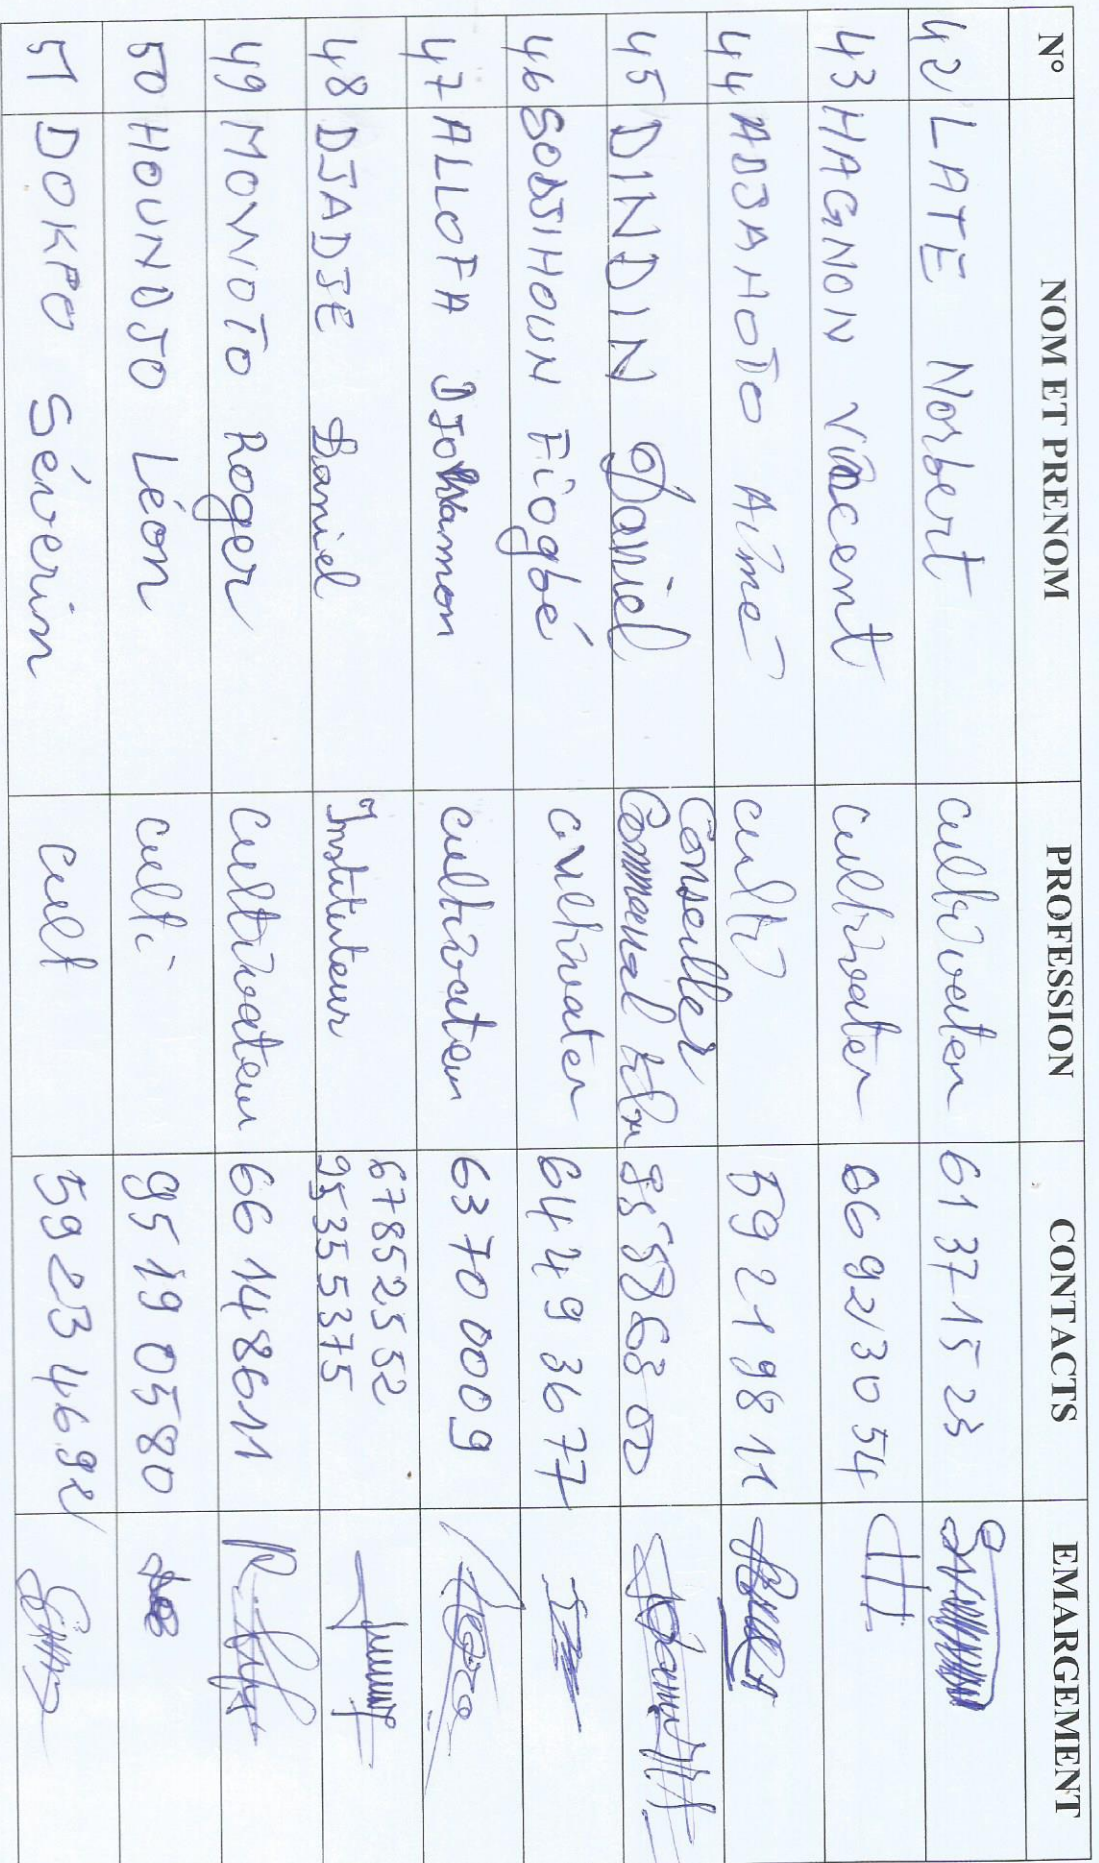 N° NOM ET PRENOM PROFESSION CONTACTS EMARGEMENT
42 LATE Norbert cultivateur 61 37 15 23
43 HAGNON Vincent cultivateur 66 92 30 54
44 ADJAHOTO Aimé culti 59 21 98 11
45 DINDIN Daniel Conseiller Communal
46 SODJIHOUN Fiogbé cultivateur 64 49 36 77
47 ALLOFA cultivateur 63 70 00 09
48 DJADJE Daniel Instituteur 67852552
95355375
49 MONNOTO Roger cultivateur 66 14 86 11
50 HOUNDJO Léon culti 95 19 05 80
51 DOKPO Séverin cult 59 23 46 92